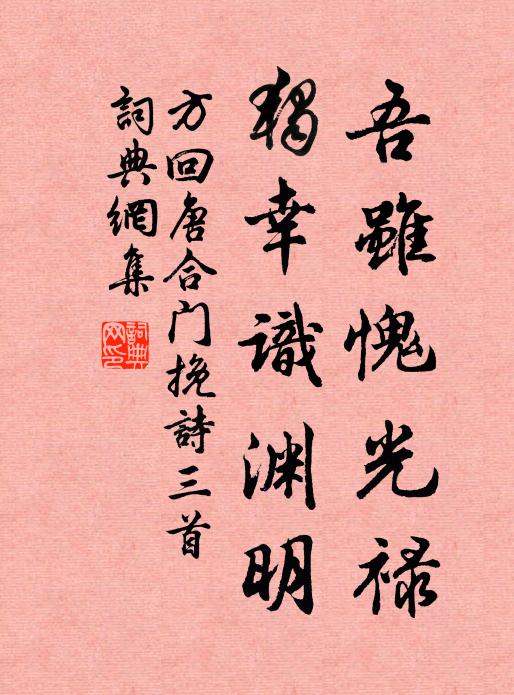 吾雖愧光禄
獨幸識渊明
方回唐合门挽詩三首
詞典網集
詞典网印